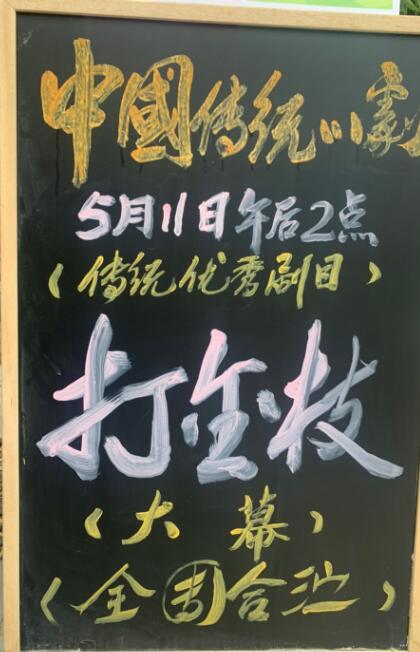 中國传统川剧
5月11日午后2点
(传统优秀剧目)
打金枝
(大幕)
(全团合演)